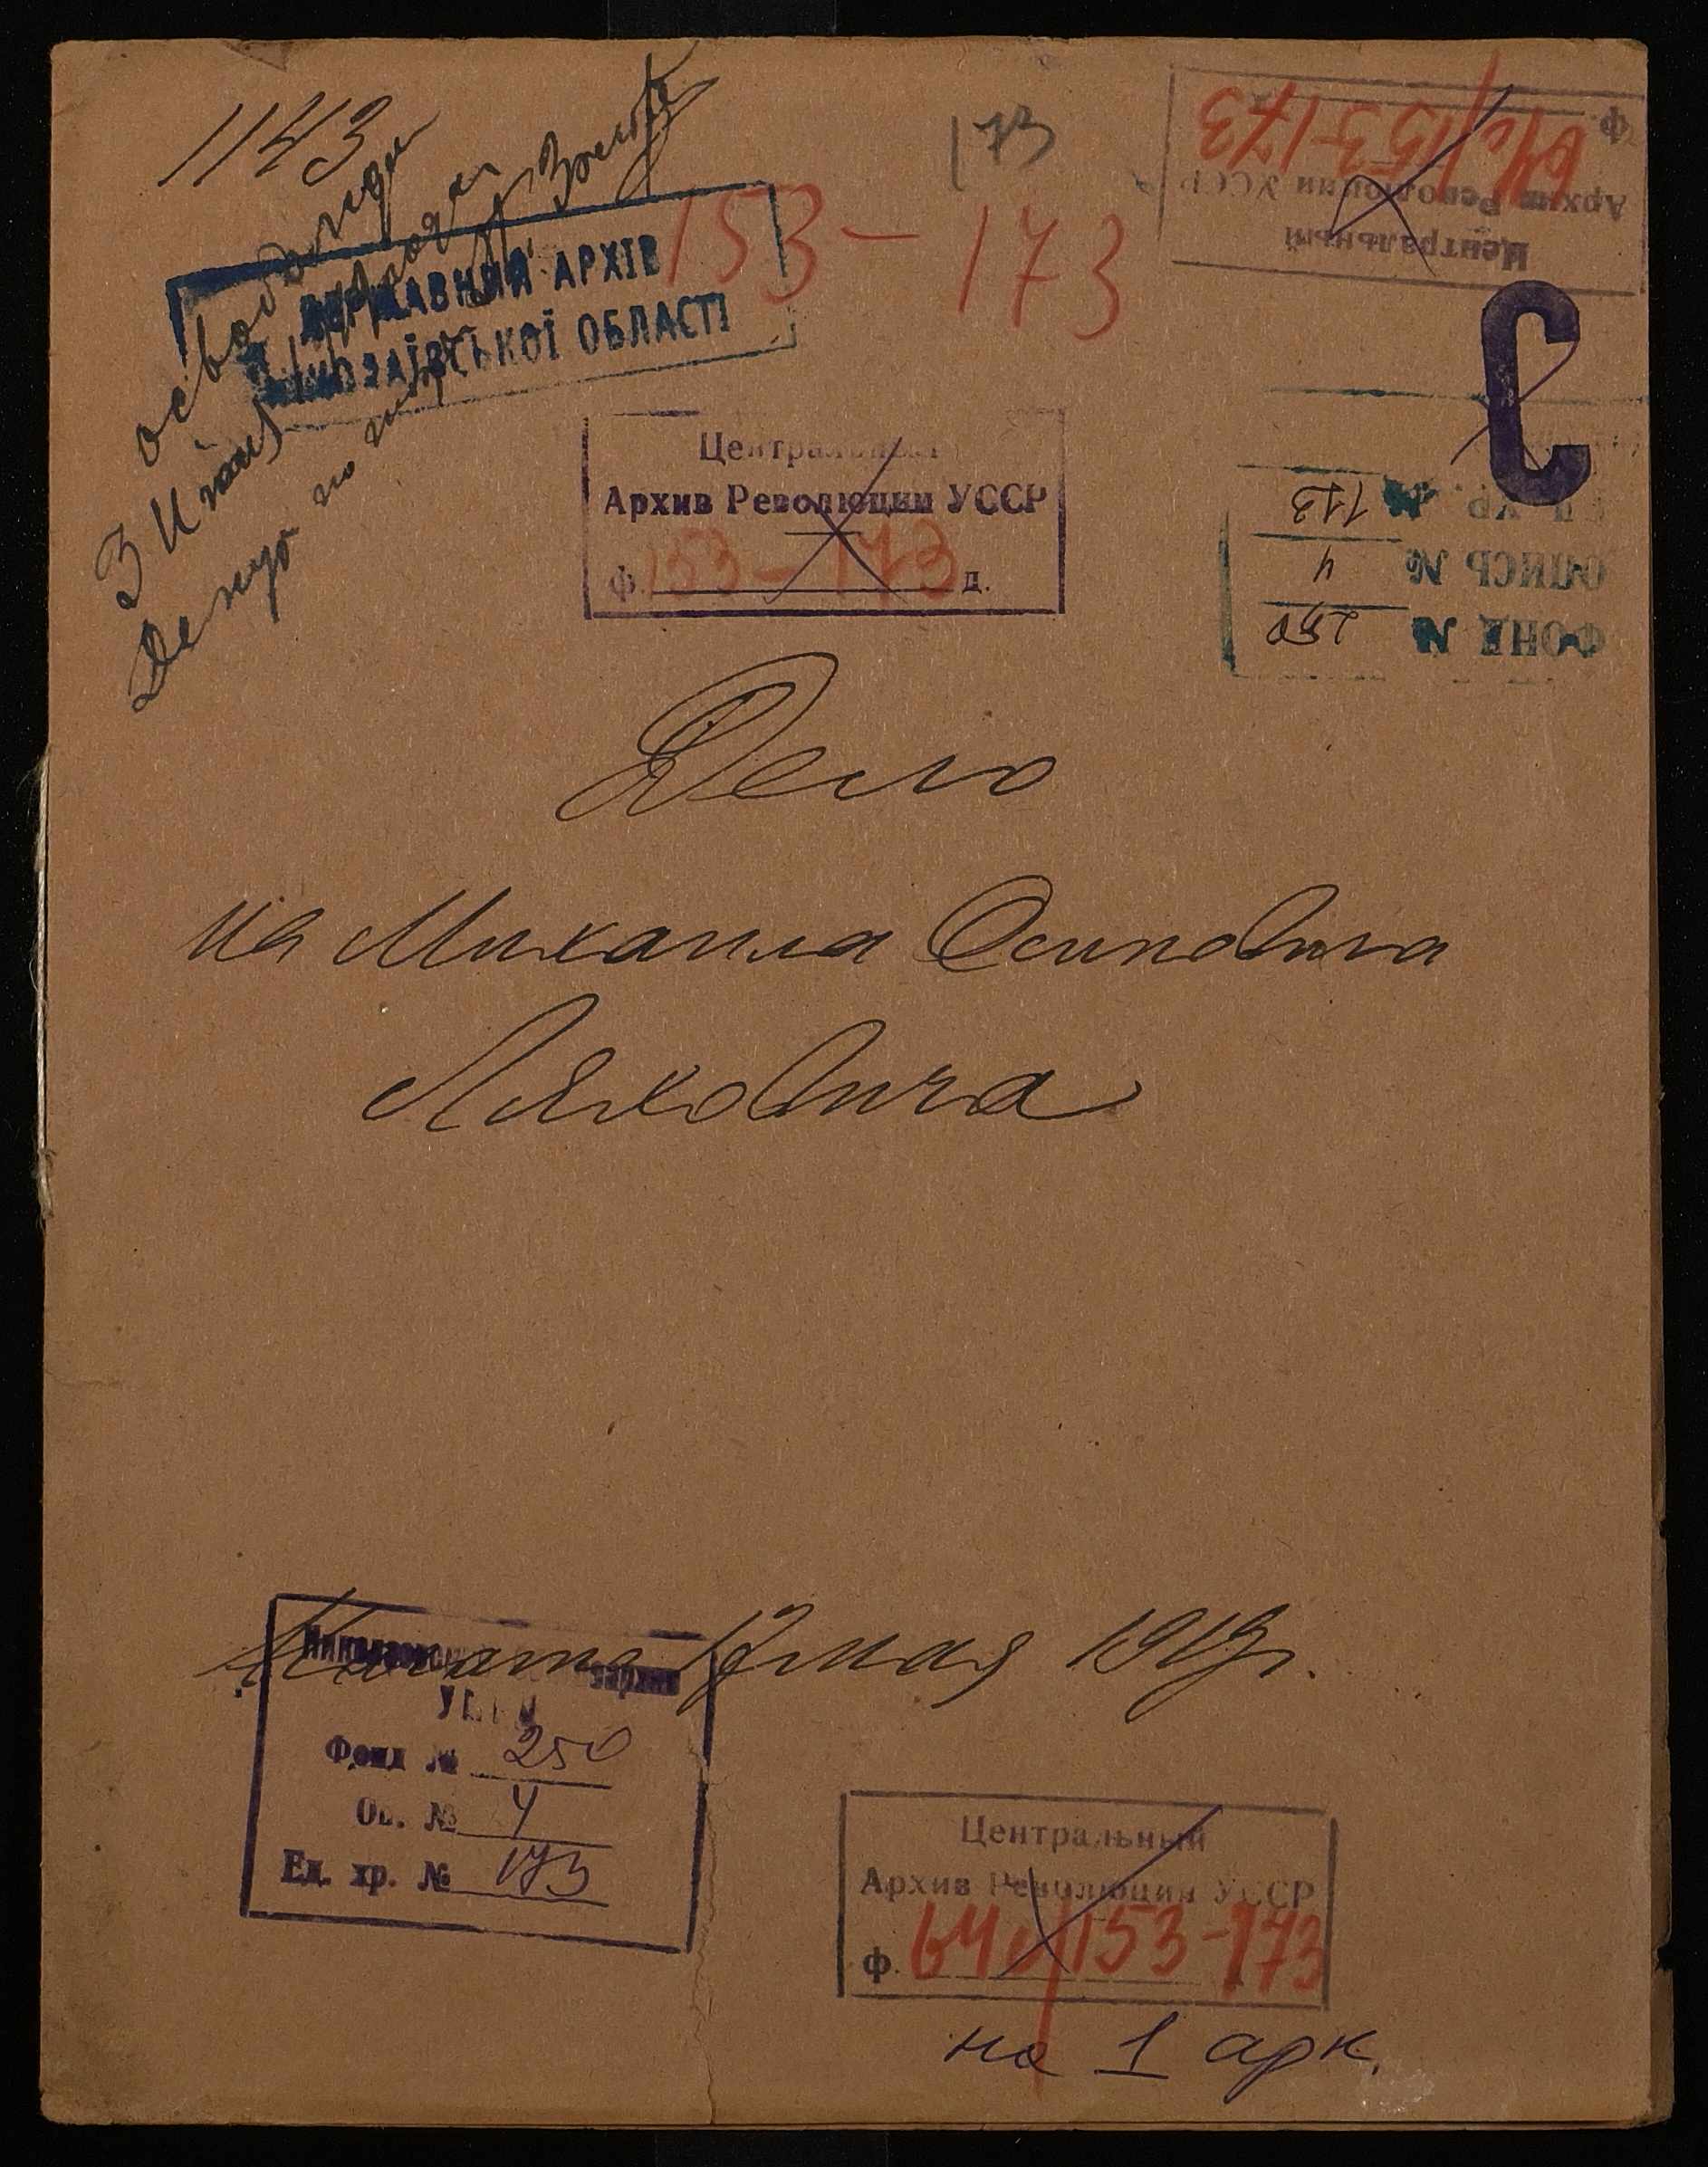 1143
173
153-173
освобожден
3 Июня
ДЕРЖАВНИЙ АРХІВ
МИКОЛАЇВСЬКОЇ ОБЛАСТІ
Центральный
Архив Революции УССР
ф. 64с/153-173
С
ФОНД № 250
ОПИСЬ № 4
ЕД. ХР. № 173
Центральный
Архив Революции УССР
ф. 153-173 д.
Дело
на Михаила Осиповича
Ляховича
Начато 17 мая 1919 г.
Фонд № 250
Оп. № 4
Ед. хр. № 173
Центральный
Архив Революции УССР
ф. 64с/153-173
на 1 арк.